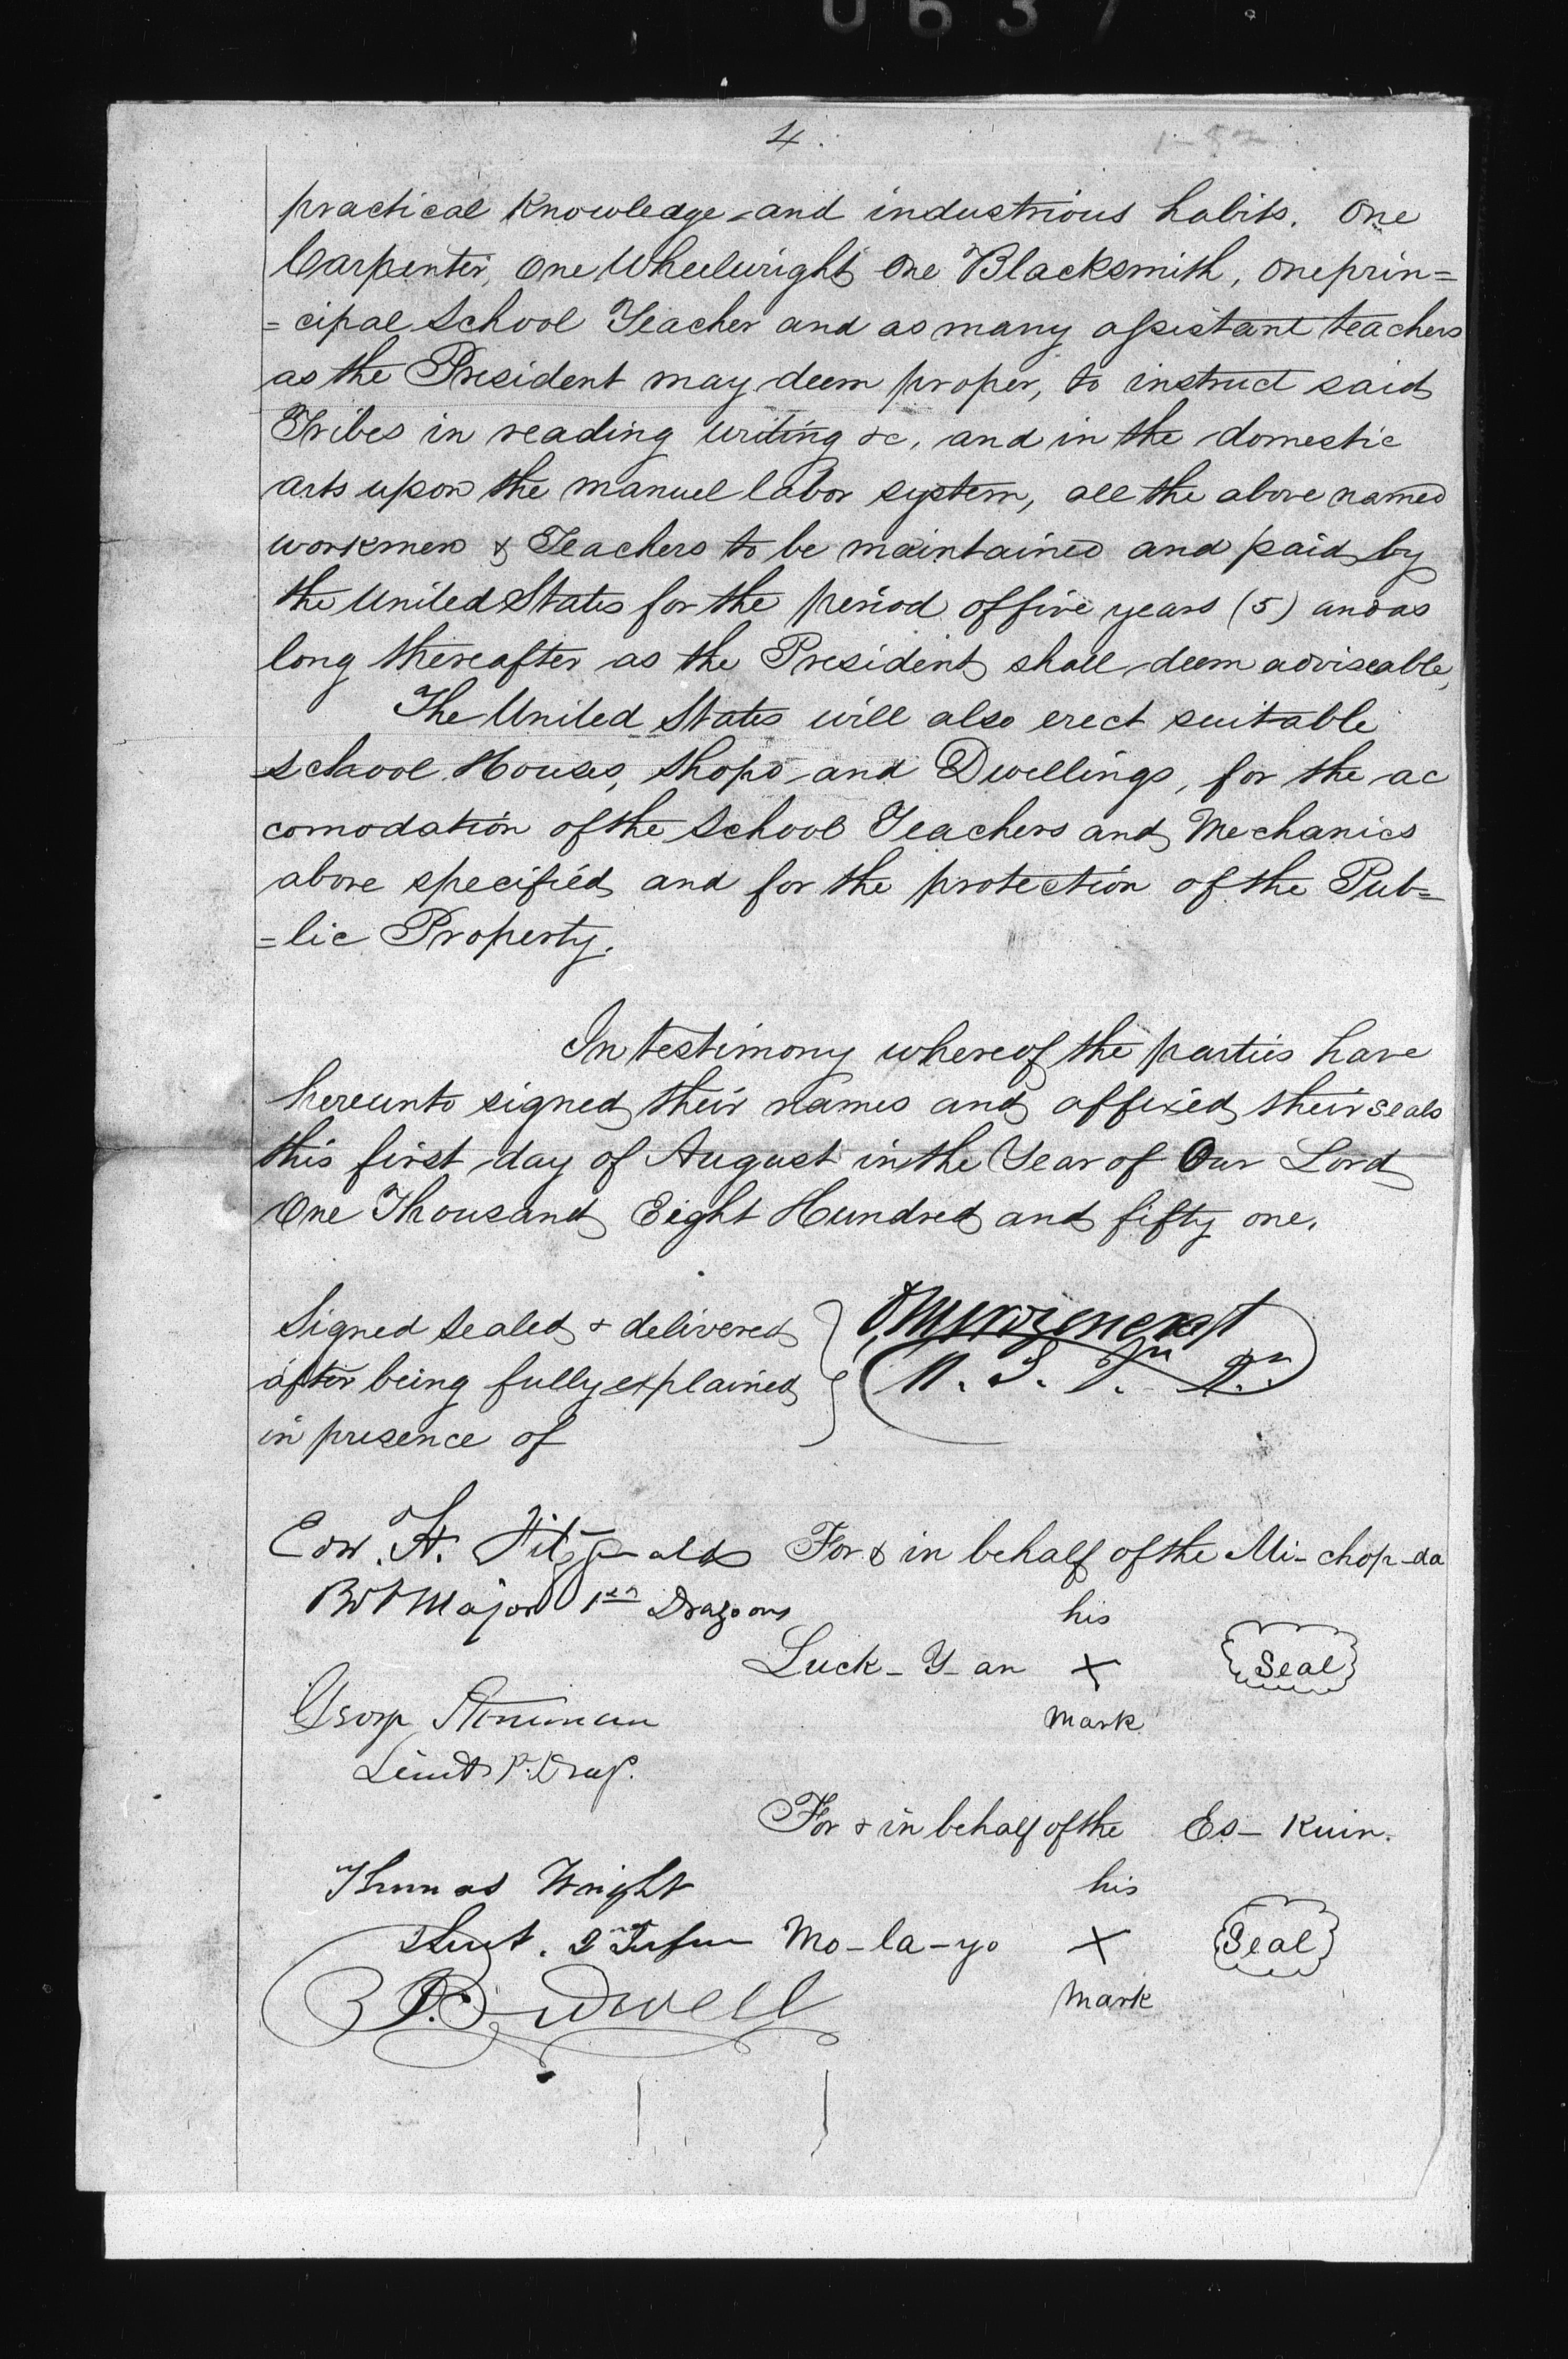 0637
4.
practical knowledge and industrious habits. One
Carpenter, One Wheelwright One Blacksmith, One prin=
=cipal School Teacher and as many assistant teachers
as the President may deem proper, to instruct said
Tribes in reading writing &c, and in the domestic
arts upon the manuel labor system, all the above named
workmen & Teachers to be maintained and paid by
the United States for the period of five years (5) and as
long thereafter as the President shall deem adviseable,
The United States will also erect suitable
school Houses, Shops and Dwellings, for the ac
comodation of the School Teachers and Mechanics
above specified and for the protection of the Pub=
=lic Property.
In testimony whereof the parties have
hereunto signed their names and affixed their seals
this first day of August in the Year of Our Lord
One Thousand Eight Hundred and fifty one.
Signed Sealed & delivered
after being fully explained
in presence of
Edw. H. Fitzgerald
Bvt Major 1st Dragoons
For & in behalf of the Mi-chop-da
his
Luck-Y-an X Seal
mark
George Stoneman
Lieut 1st Drag.
For & in behalf of the Es-Kuin.
Thomas Wright
his
Lieut. 2d Infn Mo-la-yo X Seal
mark
J. Bidwell